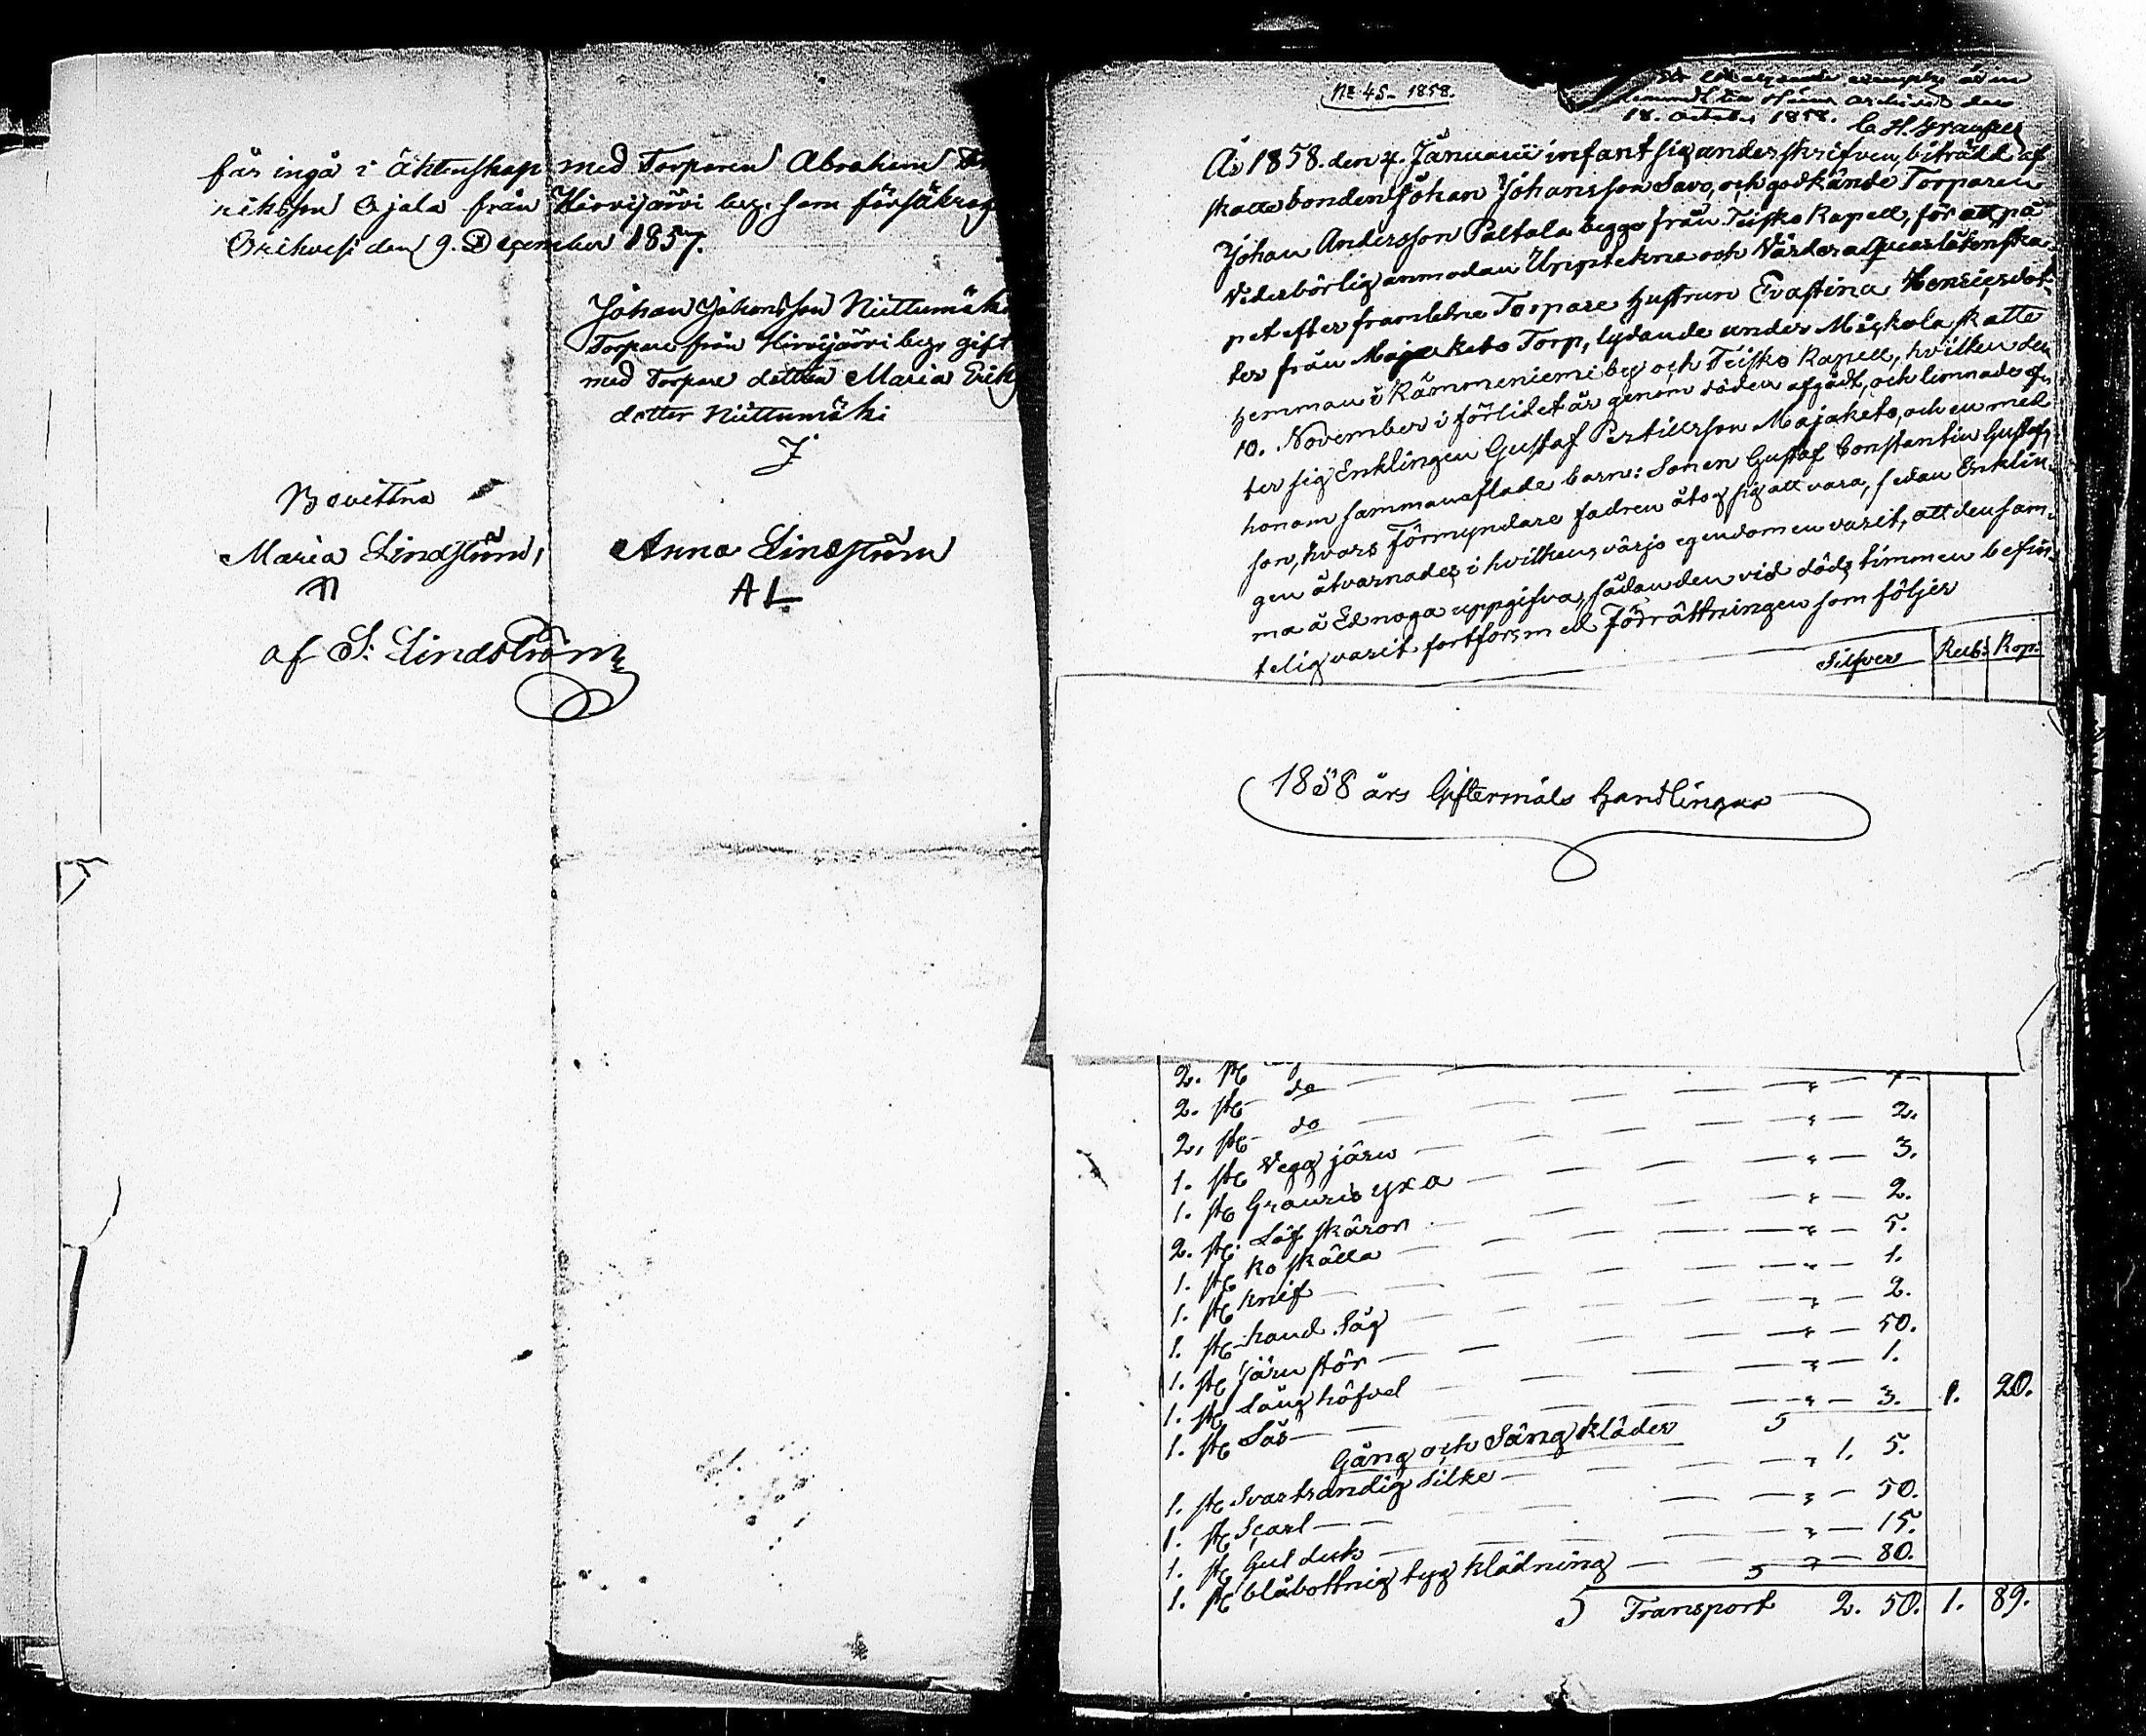 får ingå i Äktenskap med Torparen Abraham
riksson Ajala från Hirvijärvi by; som försäkras
Orihvesi den 9. December 1857.
Johan Johansson Niittumäki
Torpare från Hirvijärvi by, gift
med Torpare dottren Maria Erik
dotter Niittumäki
J
Bevittna
Maria Lindström, Anna Lindström
A L
af S: Lindström
No 45. 1858.
18. October 1858.
År 1858. den 7. Januarii infant sig underskrifven, biträdd af
skattebonden Johan Johansson Savo, och godkände Torparen
Johan Andersson Paltala begge från Teisko Kapell, för att på
Vederbörlig anmodan Uppteckna och Värdera qvarlåtenska-
pet efter framledne Torpare hustrun Evastina Henricsdot-
ter från Majaketo Torp, lydande under Mäckola skatte
hemman i Kämmeniemi by och Teisko Kapell, hvilken den
10. November i förlidet år genom döden afgådt, och lemnade ef-
ter sig Enklingen Gustaf Pertillsson Majaketo, och en med
honom sammanaflade barn: Sonen Gustaf Constantin Gustafs-
son, hvars Förmyndare fadren åtog sig att vara, sedan Enklin-
gen åtvarnades, i hvilkens värjo egendomen varit, att densam-
ma å Ed noga uppgifva, sådan den vid döds timmen befin-
telig varit, fortfors med Förrättningen som följer
Silfver Rub: Kop:
1858 års Giftermåls handlingar
2. st
2. st do 7
2. st do 2.
1. st Vegg järn 3.
1. st Grauris yxa 2.
2. st Löf skäror 5.
1. st ko skälla 1.
1. st knif 2.
1. st hand såg 50.
1. st järn stör 1.
1. st Lång höfvel 3. 1. 20.
1. st Lås 5
Gång och Säng kläder
1. st Svartrandig silke 1. 5.
1. st Scarl 50.
1. st Gul duk 15.
1. st blåbottnig tyg klädning 80.
5 Transport 2. 50. 1. 89.